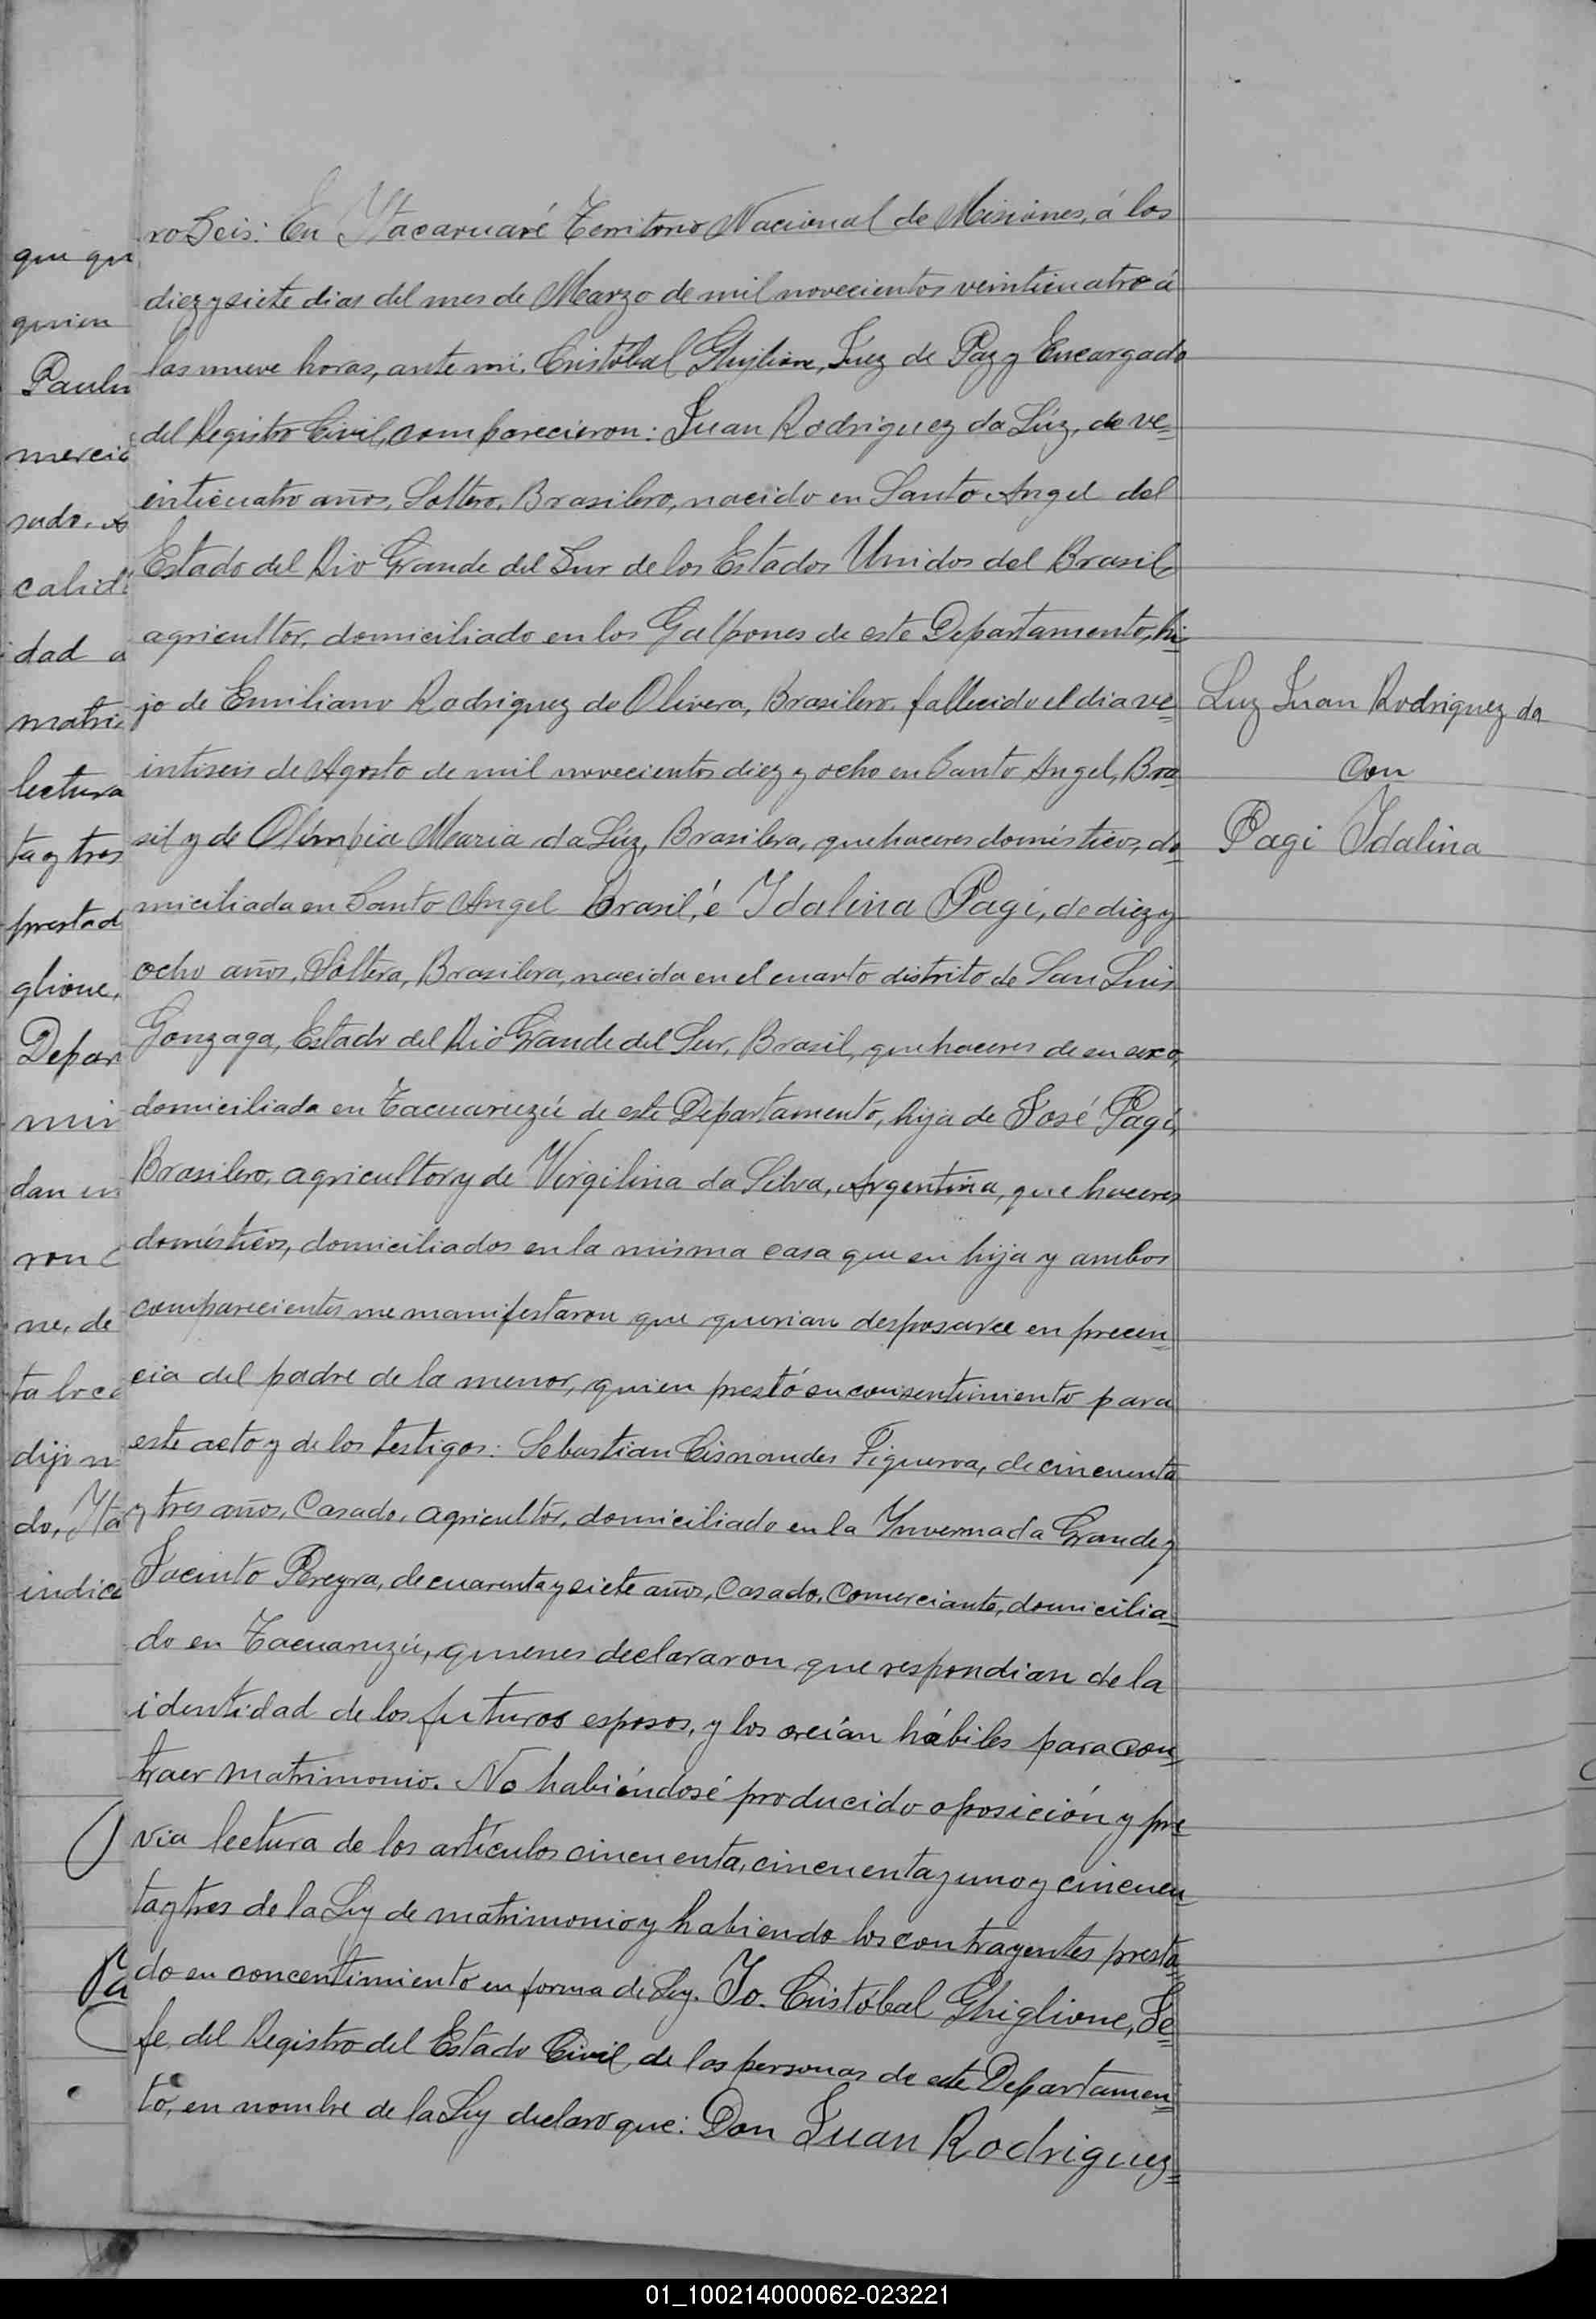 ro Seis: En Ytacaruaré Territorio Nacional de Misiones, á los
diez y siete dias del mes de Marzo de mil novecientos veinticuatro á
las nueve horas, ante mi, Cristóbal Ghiglione, Juez de Paz y Encargado
del Registro Civil, comparecieron: Juan Rodriguez da Lúz, de ve=
inticuatro años, Soltero, Brasilero, nacido en Santo Angel del
Estado del Rio Grande del Sur de los Estados Unidos del Brasil
agricultor, domiciliado en los Galpones de este Departamento, hi=
jo de Emiliano Rodriguez de Olivera, Brasilero, fallecido el dia ve=
intiseis de Agosto de mil novecientos diez y ocho en Santo Angel, Bra=
sil y de Olímpia Maria da Lúz, Brasilera, quehaceres domésticos, do=
miciliada en Santo Angel Brasil, é Ydalina Pagi, de diez y
ocho años, Soltera, Brasilera, nacida en el cuarto distrito de San Luis
Gonzaga, Estado del Rio Grande del Sur, Brasil, quehaceres de su sexo,
domiciliada en Tacuaruzú de este Departamento, hija de José Pagi,
Brasilero, agricultor y de Virgilina da Silva, Argentina, que haceres
domésticos, domiciliados en la misma casa que su hija y ambos
comparecientes me manifestaron que querian desposarce en precen=
cia del padre de la menor, quien prestó su consentimiento para
este acto y de los testigos: Sebastian Cisnandes Figueroa, de cincuenta
y tres años, Casado, agricultor, domiciliado en la Ynvernada Grande y
Jacinto Pereyra, de cuarenta y siete años, Casado, Comerciante, domicilia=
do en Tacuaruzú, quienes declararon que respondian de la
identidad de los futuros esposos, y los creían hábiles para con=
traer matrimonio. No habiéndosé producido oposición y pre=
via lectura de los artículos cincuenta, cincuenta y uno y cincuen=
ta y tres de la Ley de matrimonio y habiendo los contrayentes presta=
do su concentimiento en forma de Ley. Yo. Cristóbal Ghiglione, Je=
fe, del Registro del Estado Civil, de las personas de este Departamen=
to, en nombre de la Ley declaro que: Don Juan Rodriguez=
Luz Juan Rodriguez da
con
Pagi Ydalina
que qu
quien
Paulu
merci
sado. A
calid
idad a
matri
lectura
ta y tres
prestad
glione,
Depar
mi
dan en
ron C
ne, de
ta loca
dijo
do, Yta
indica
01_100214000062-023221